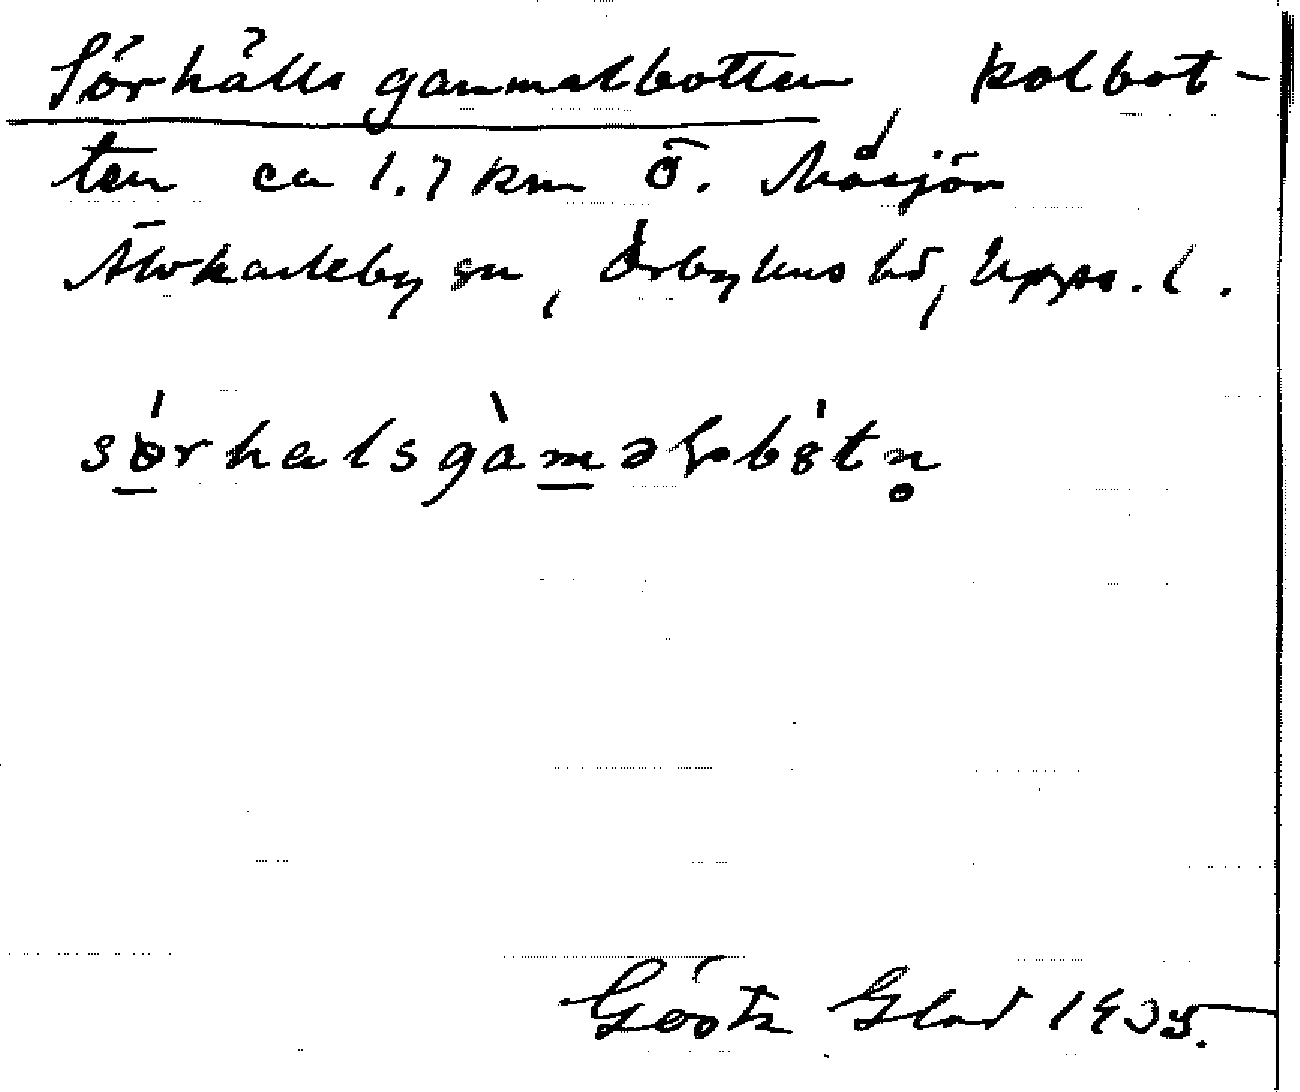 Sörhålls gammalbotten, kolbot-
ten ca 1.7 km Ö. Måsjön
Älvkarleby sn, Örbyhus hd, Upps. l.
sørhalsgàməlbòtn̥
Gösta Glad 1935.